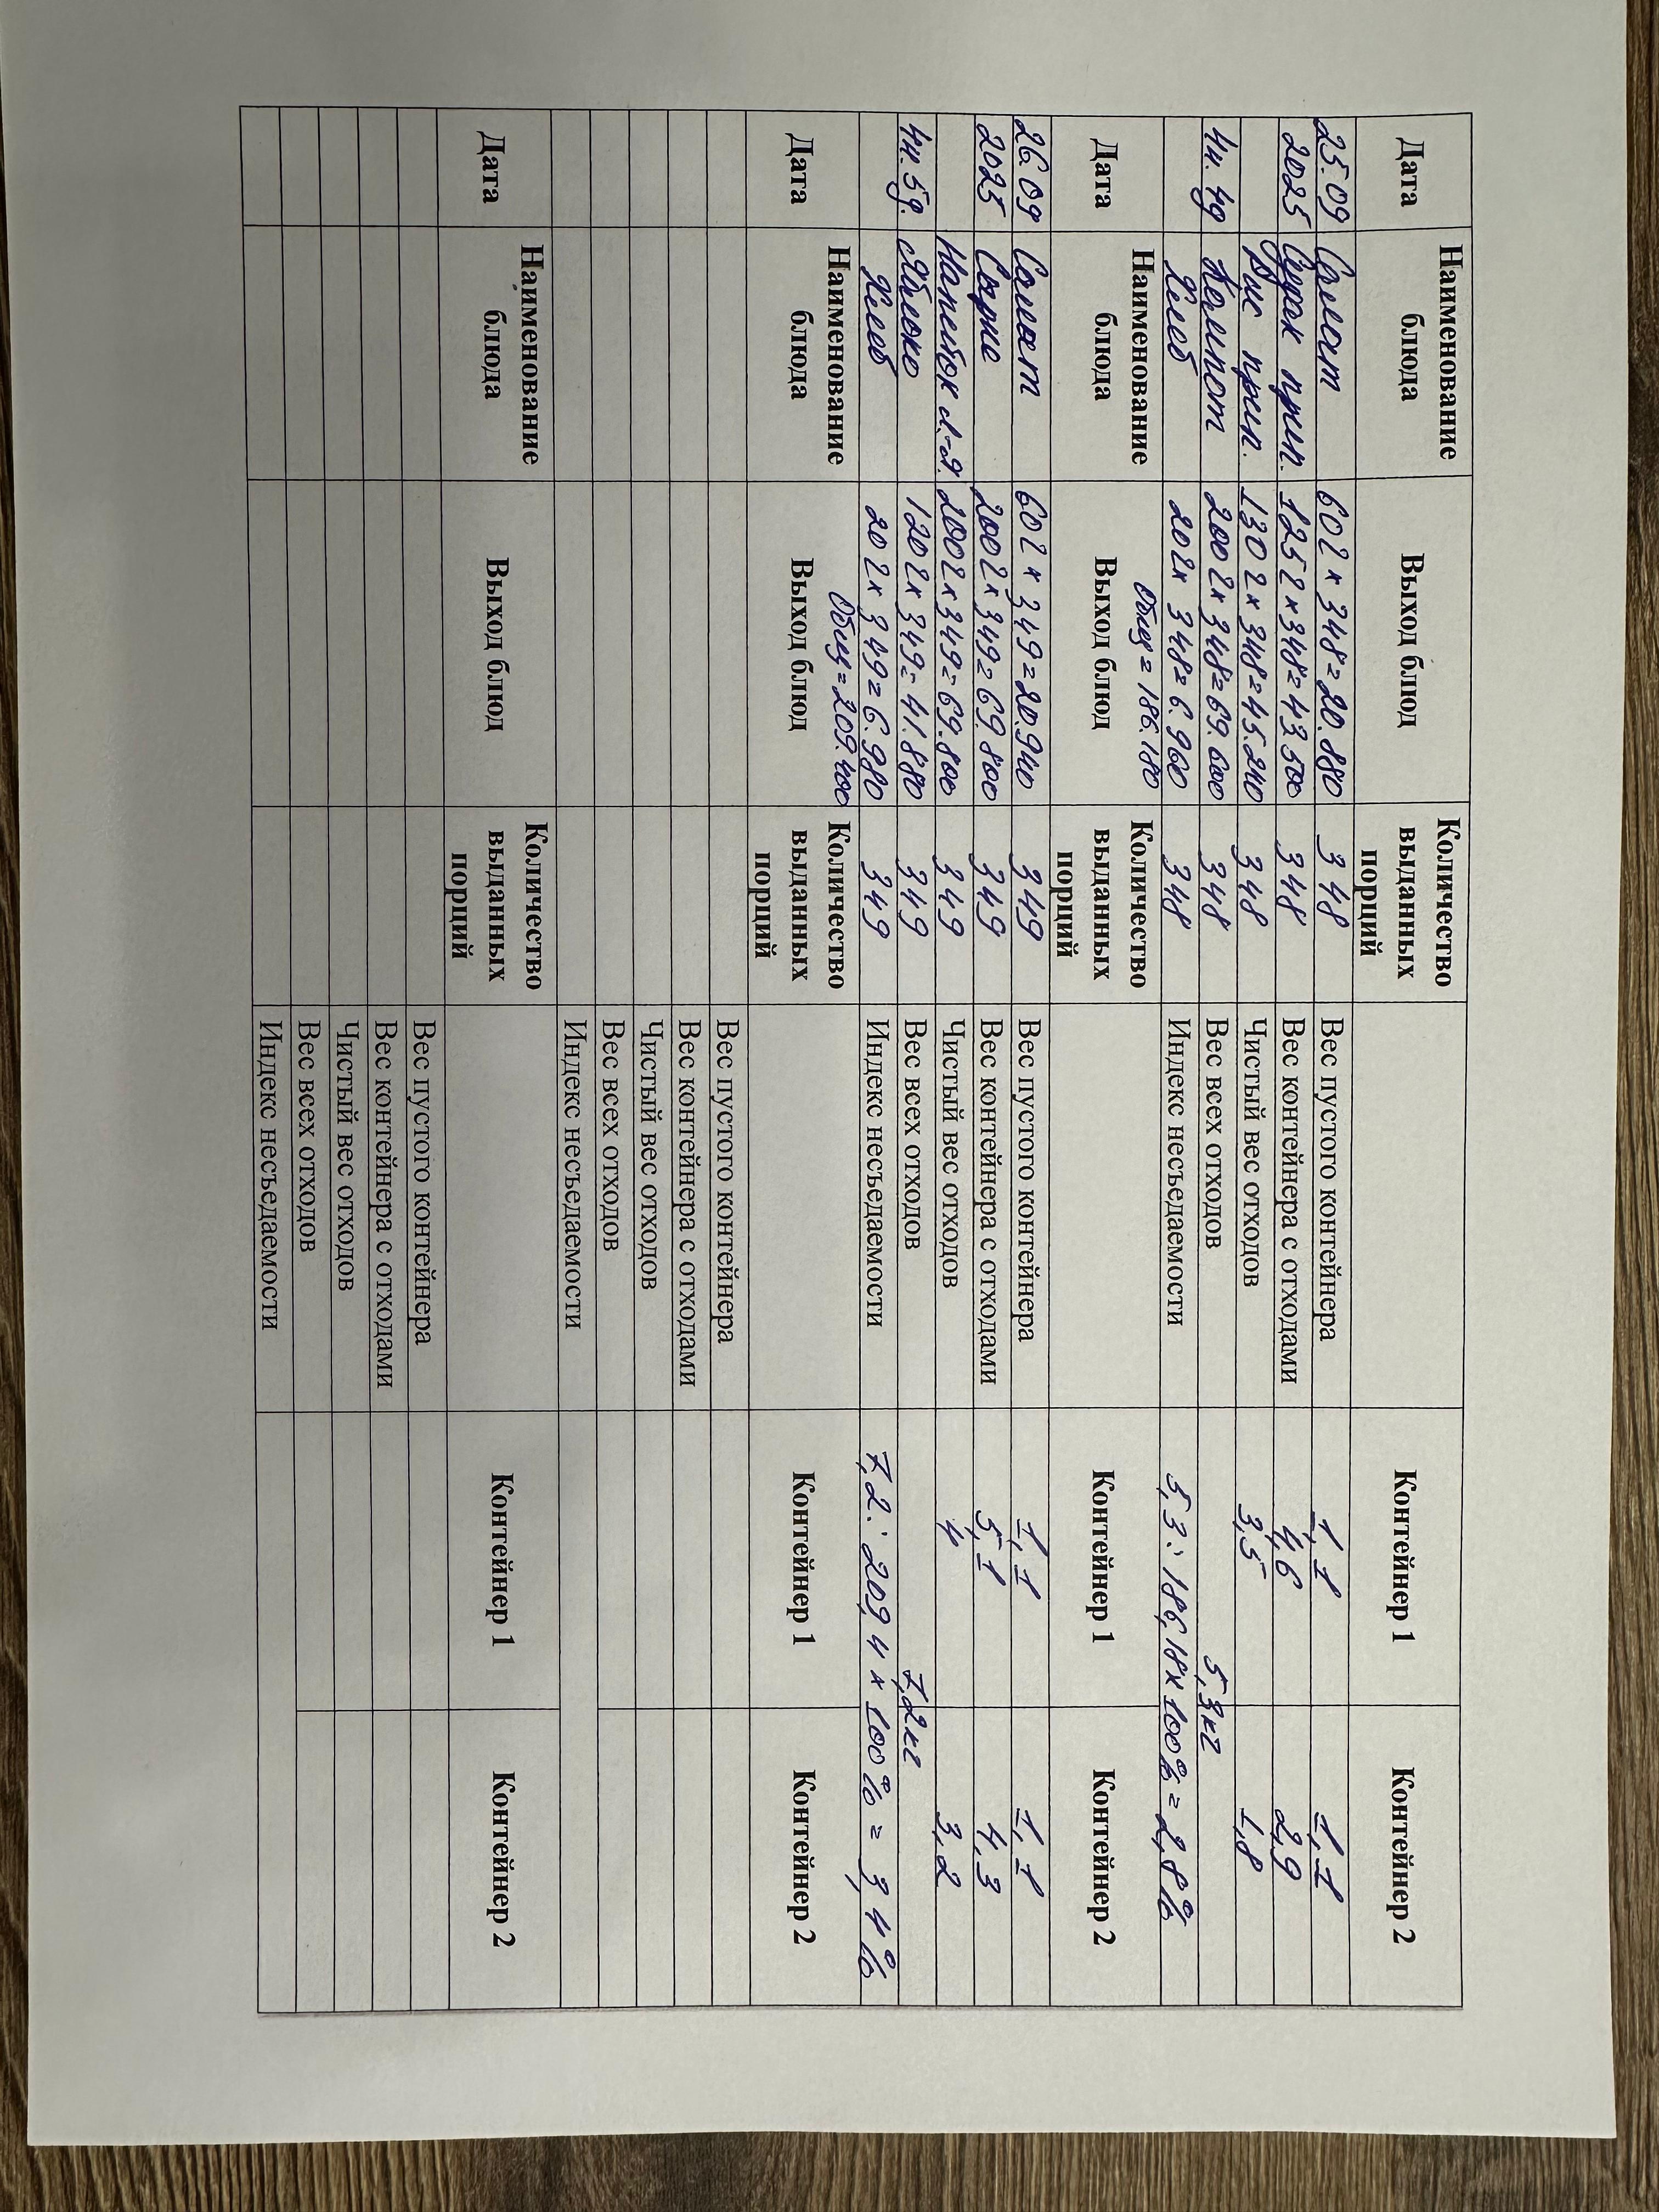 Дата Наименование блюда Выход блюд Количество выданных порций Контейнер 1 Контейнер 2
25.09 Салат 60г х 348 = 20.880 348 Вес пустого контейнера 1,1 1,1
2025 Судак прип. 125г х 348 = 43.500 348 Вес контейнера с отходами 4,6 2,9
Рис прип. 130г х 348 = 45.240 348 Чистый вес отходов 3,5 1,8
4н. 4д Компот 200г х 348 = 69.600 348 Вес всех отходов 5,3 кг
Хлеб 20г х 348 = 6.960 348 Индекс несъедаемости 5,3 : 186,18 х 100% = 2,8%
Общ = 186.180
Дата Наименование блюда Выход блюд Количество выданных порций Контейнер 1 Контейнер 2
26.09 Салат 60г х 349 = 20.940 349 Вес пустого контейнера 1,1 1,1
2025 200г х 349 = 69.800 349 Вес контейнера с отходами 5,1 4,3
Напиток 200г х 349 = 69.800 349 Чистый вес отходов 4 3,2
4н. 5д. Яблоко 120г х 349 = 41.880 349 Вес всех отходов 7,2 кг
Хлеб 20г х 349 = 6.980 349 Индекс несъедаемости 7,2 : 209,4 х 100% = 3,4%
Общ = 209.400
Дата Наименование блюда Выход блюд Количество выданных порций Контейнер 1 Контейнер 2
Вес пустого контейнера
Вес контейнера с отходами
Чистый вес отходов
Вес всех отходов
Индекс несъедаемости
Дата Наименование блюда Выход блюд Количество выданных порций Контейнер 1 Контейнер 2
Вес пустого контейнера
Вес контейнера с отходами
Чистый вес отходов
Вес всех отходов
Индекс несъедаемости